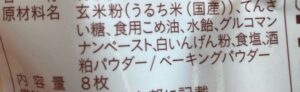 原材料名 玄米粉(うるち米(国産))、てんさ
い糖、食用こめ油、水飴、グルコマン
ナンペースト、白いんげん粉、食塩、酒
粕パウダー/ベーキングパウダー
内容量 8枚